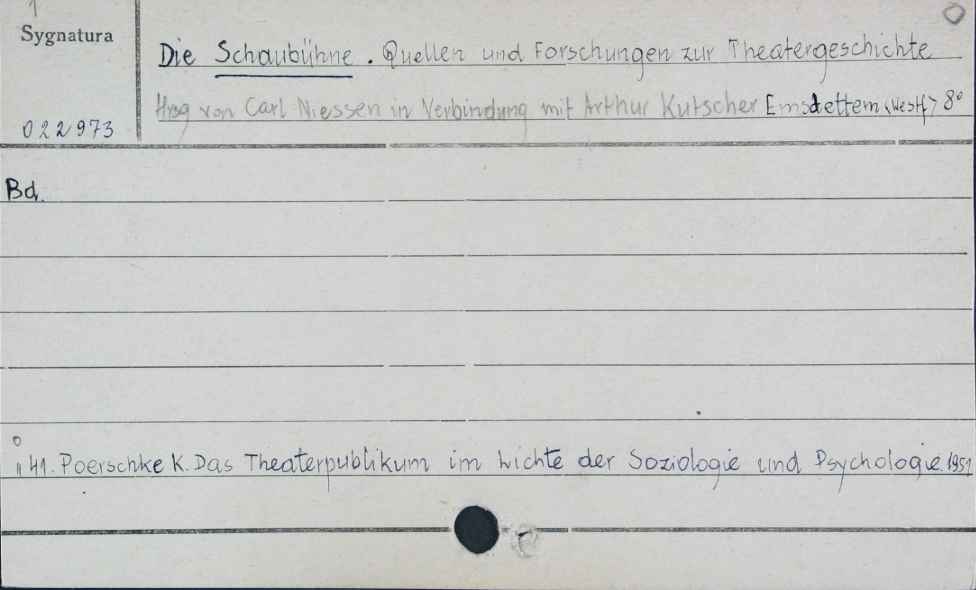 Sygnatura
Die Schaubühne. Quellen und Forschungen zur Theatergeschichte
Hrsg von Carl Niessen in Verbindung mit Arthur Kutscher Emsdettem <Westf> 8°
022973
Bd.
" 41. Poerschke K. Das Theaterpublikum im Lichte der Soziologie und Psychologie. 1951